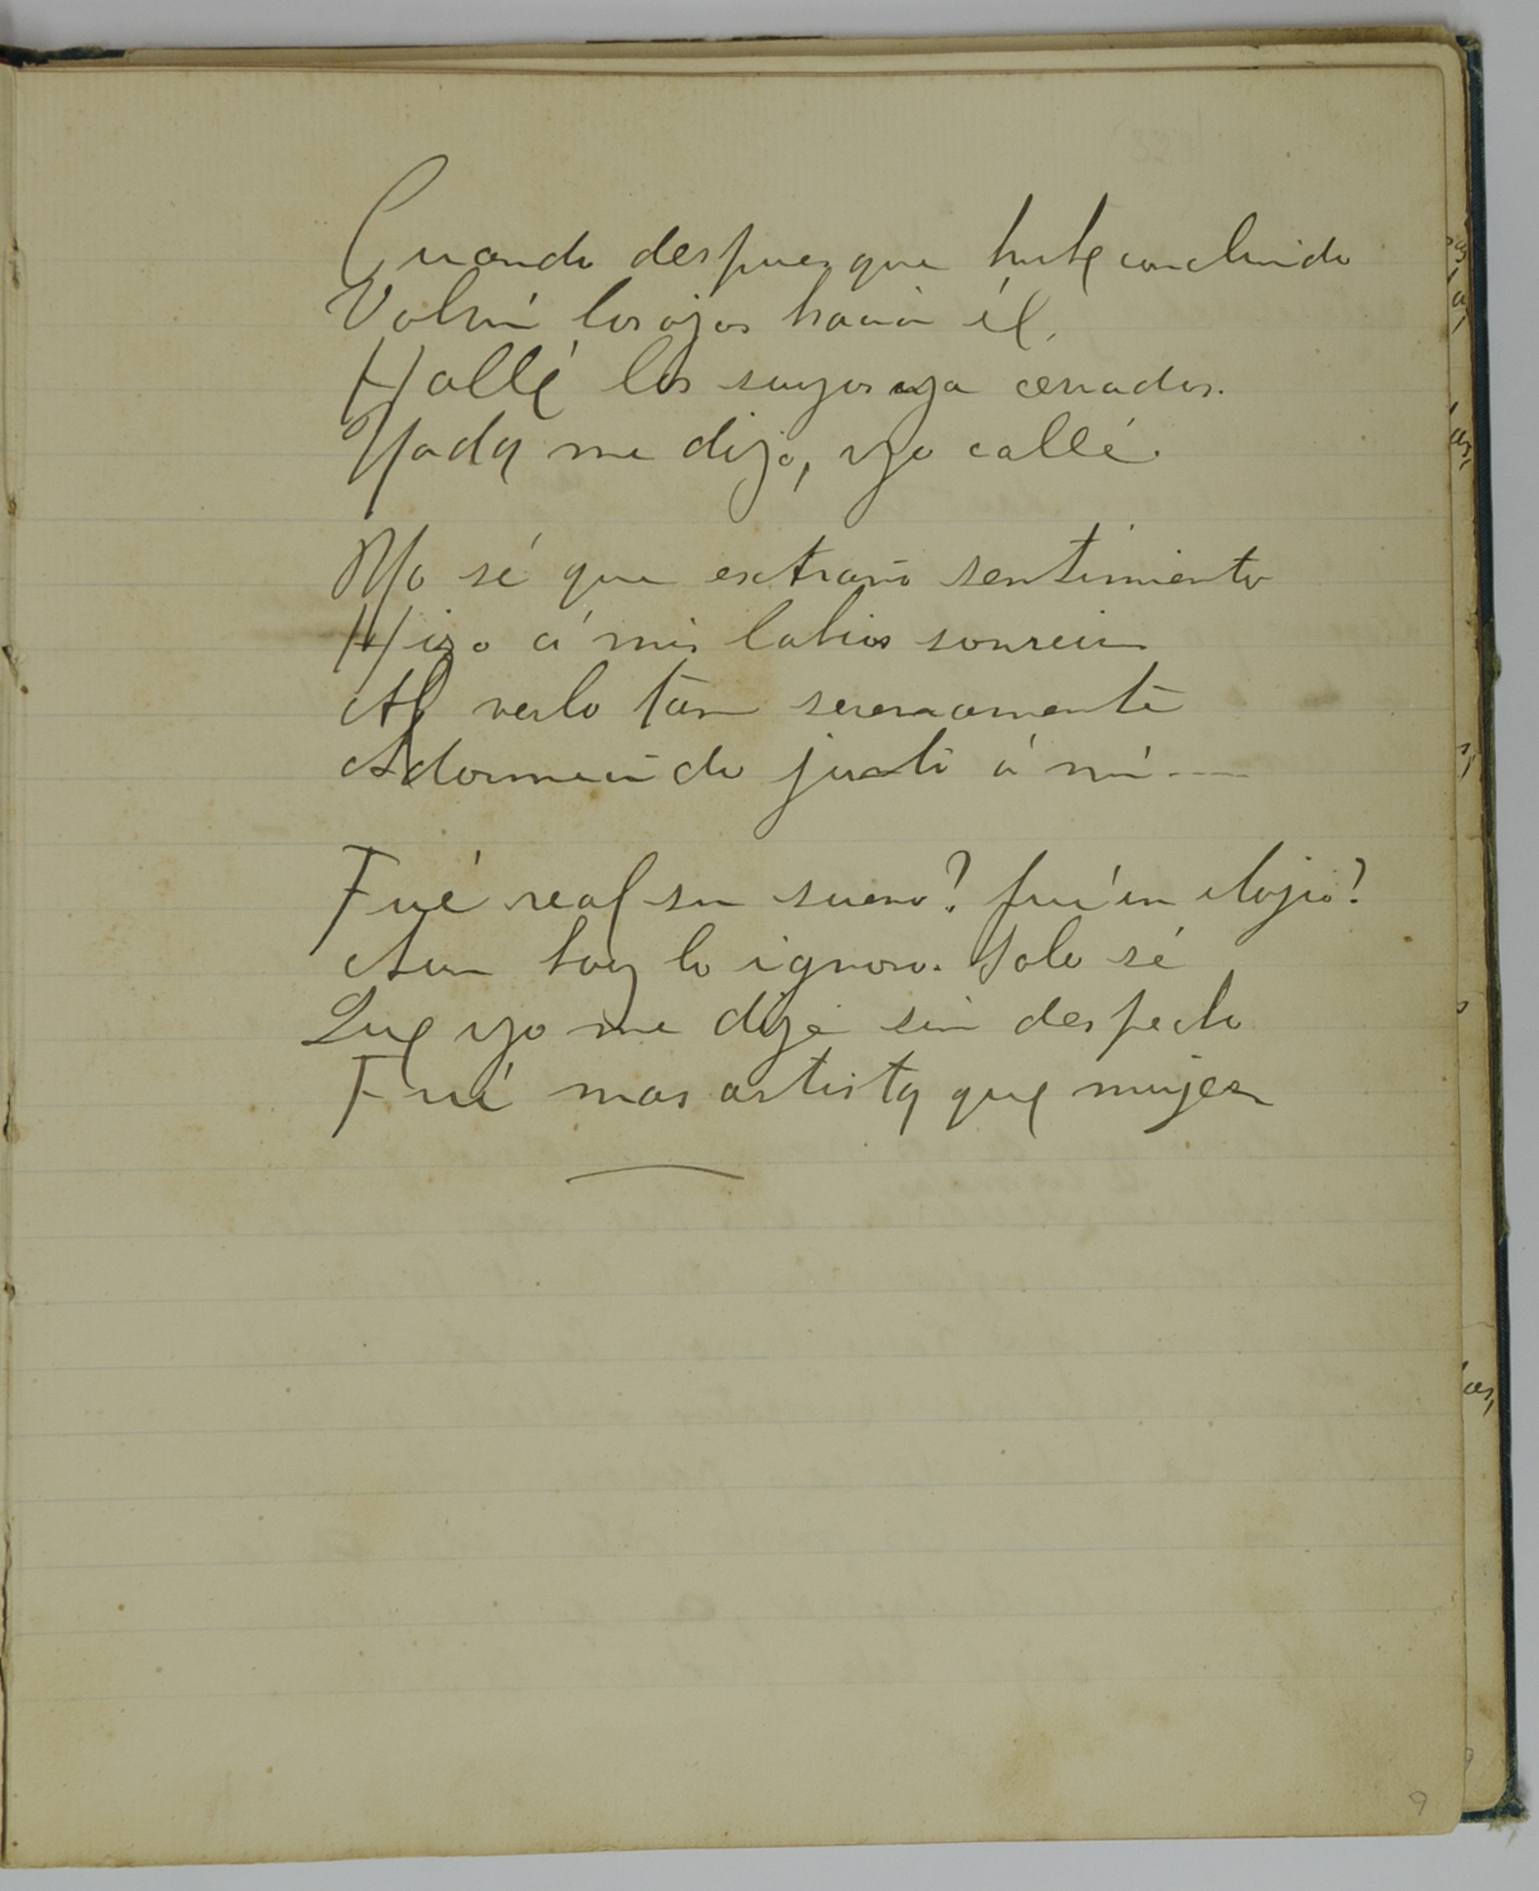 Cuando despues que hube concluido
Volví los ojos hácia él,
Hallé los suyos ya cerrados.
Nada me dijo, yo callé.
No sé que extraño sentimiento
Hizo á mis labios sonreir
Al verlo tan serenamente
Adormecido junto á mí....
Fué real su sueno? fué un elojio?
Aun hoy lo ignoro. Solo sé
Que yo me dije sin despecho
Fuí mas artista que mujer
9